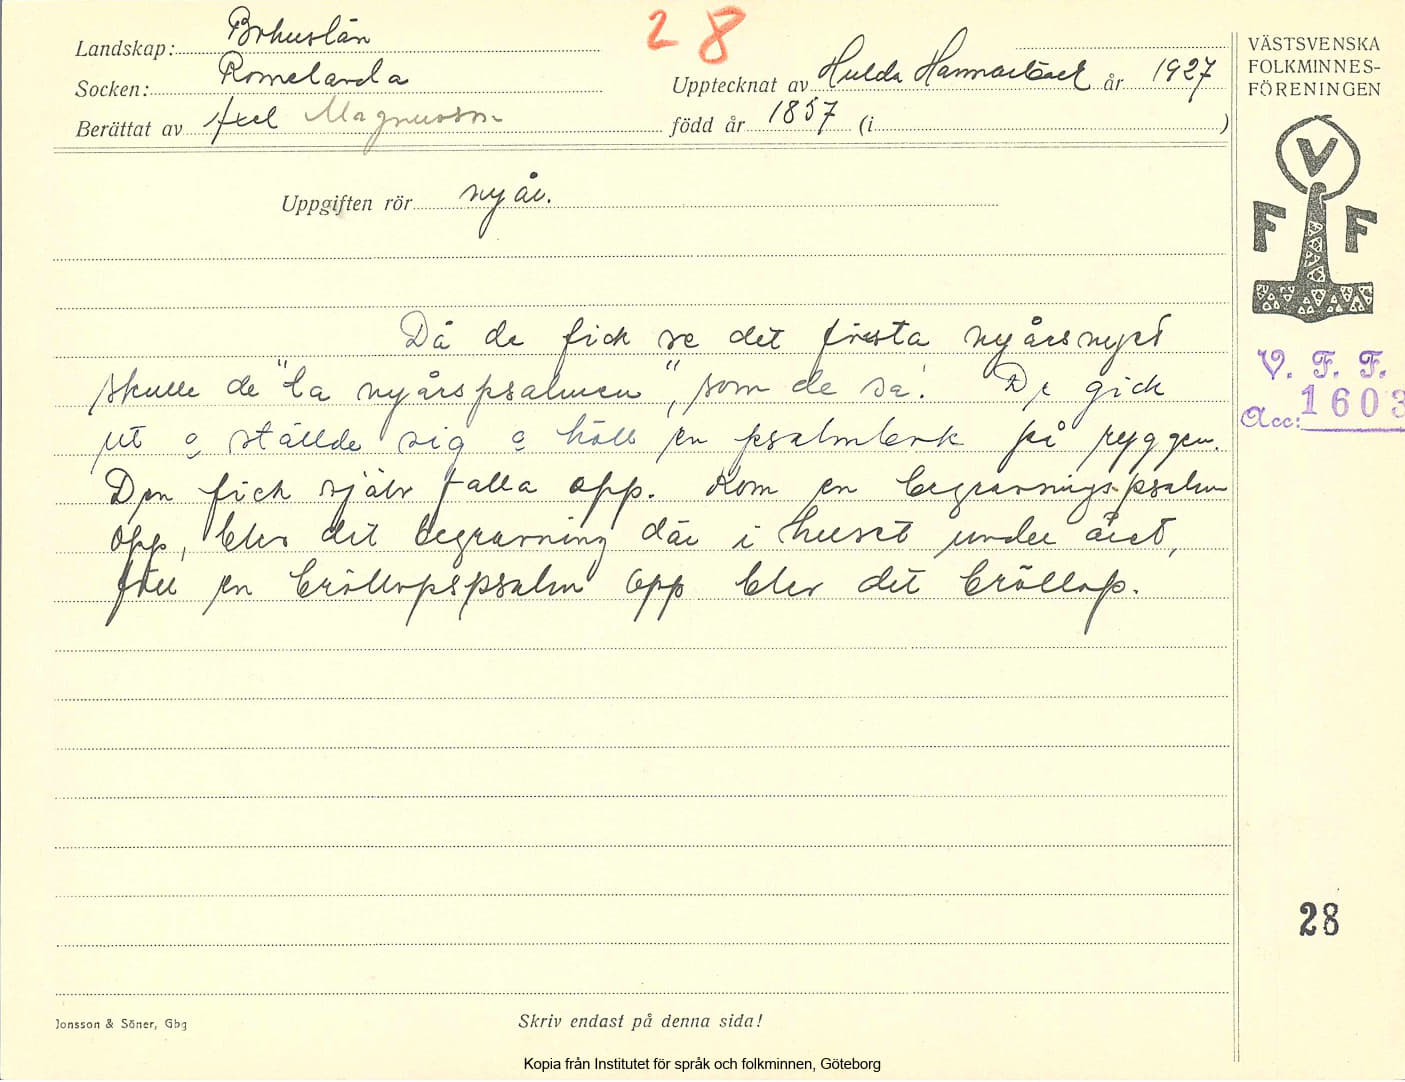 28
Landskap: Bohuslän
Socken: Romelanda
Berättat av Axel Magnusson
Upptecknat av Hulda Hammarbäck år 1927
född år 1857 (i )
VÄSTSVENSKA
FOLKMINNES-
FÖRENINGEN
V
F F
Uppgiften rör nyår.
Då de fick se det första nyårsnyet
skulle de "ta nyårspsalmen", som de sa! De gick
ut o ställde sig o höll en psalmbok på ryggen.
Den fick själv falla opp. Kom en begravningspsalm
opp, blev det begravning där i huset under året,
föll en bröllopspsalm opp blev det bröllop.
V. F. F.
Acc: 1603
28
Jonsson & Söner, Gbg
Skriv endast på denna sida!
Kopia från Institutet för språk och folkminnen, Göteborg